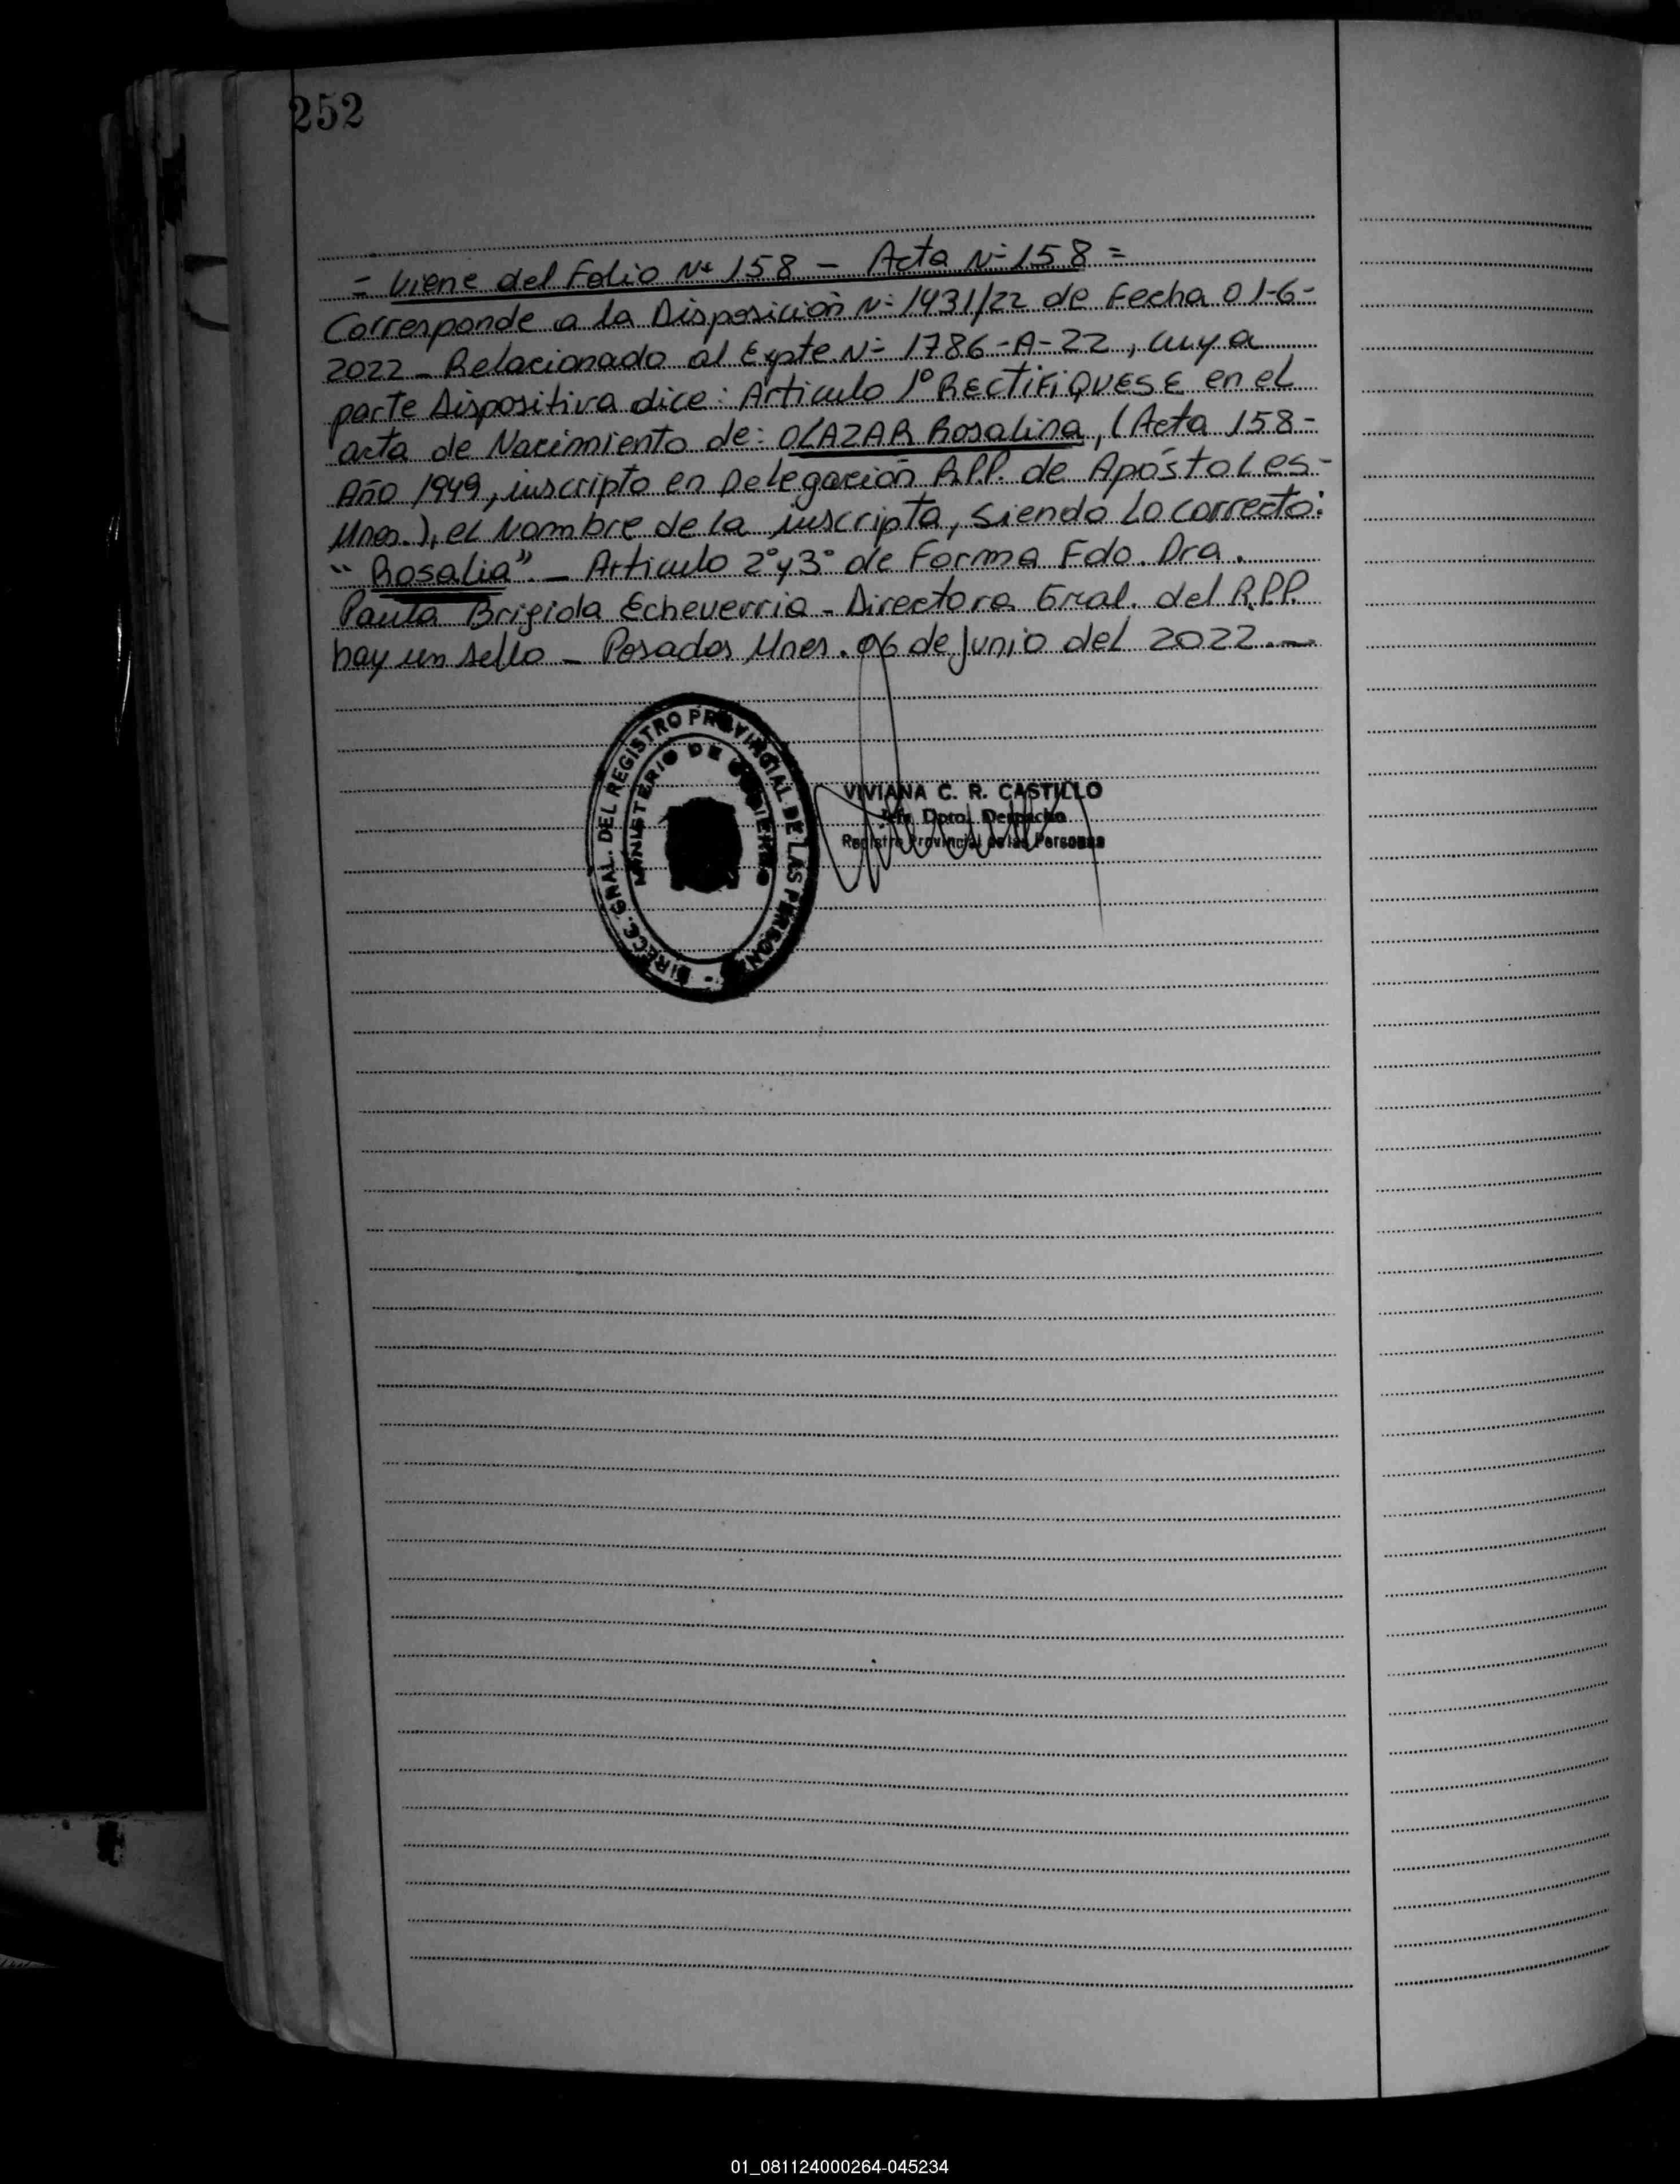 252
= Viene del Folio Nº 158 - Acta Nº 158 =
Corresponde a la Disposición Nº 1431/22 de Fecha 01-6-
2022 - Relacionado al Expte Nº 1786-A-22, cuya
parte Dispositiva dice: Articulo 1º RECTIFIQUESE en el
acta de Nacimiento de: OLAZAR Rosalina, (Acta 158-
Año 1949, inscripto en Delegación R.P.P. de Apóstoles-
Mnes.), el Nombre de la inscripta, siendo lo correcto:
"Rosalia". - Articulo 2º y 3º de Forma Fdo. Dra.
Paula Brigida Echeverria - Directora Gral. del R.P.P.
hay un sello - Posadas Mnes. 06 de Junio del 2022. -
DIRECC. GRAL. DEL REGISTRO PROVINCIAL DE LAS PERSONAS -
MINISTERIO DE GOBIERNO
VIVIANA C. R. CASTILLO
Jefa Dpto. Despacho
Registro Provincial de las Personas
01_081124000264-045234